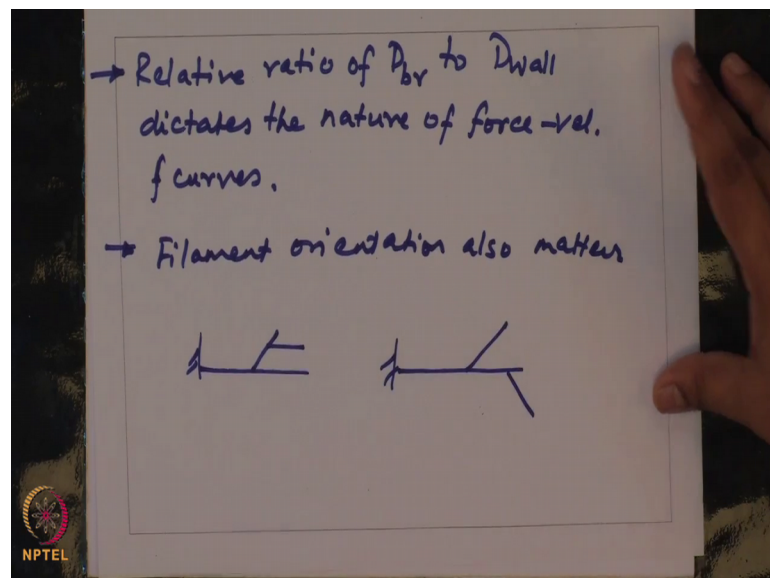 → Relative ratio of D_br to D_wall
dictates the nature of force-vel.
f curves.
→ Filament orientation also matters
NPTEL